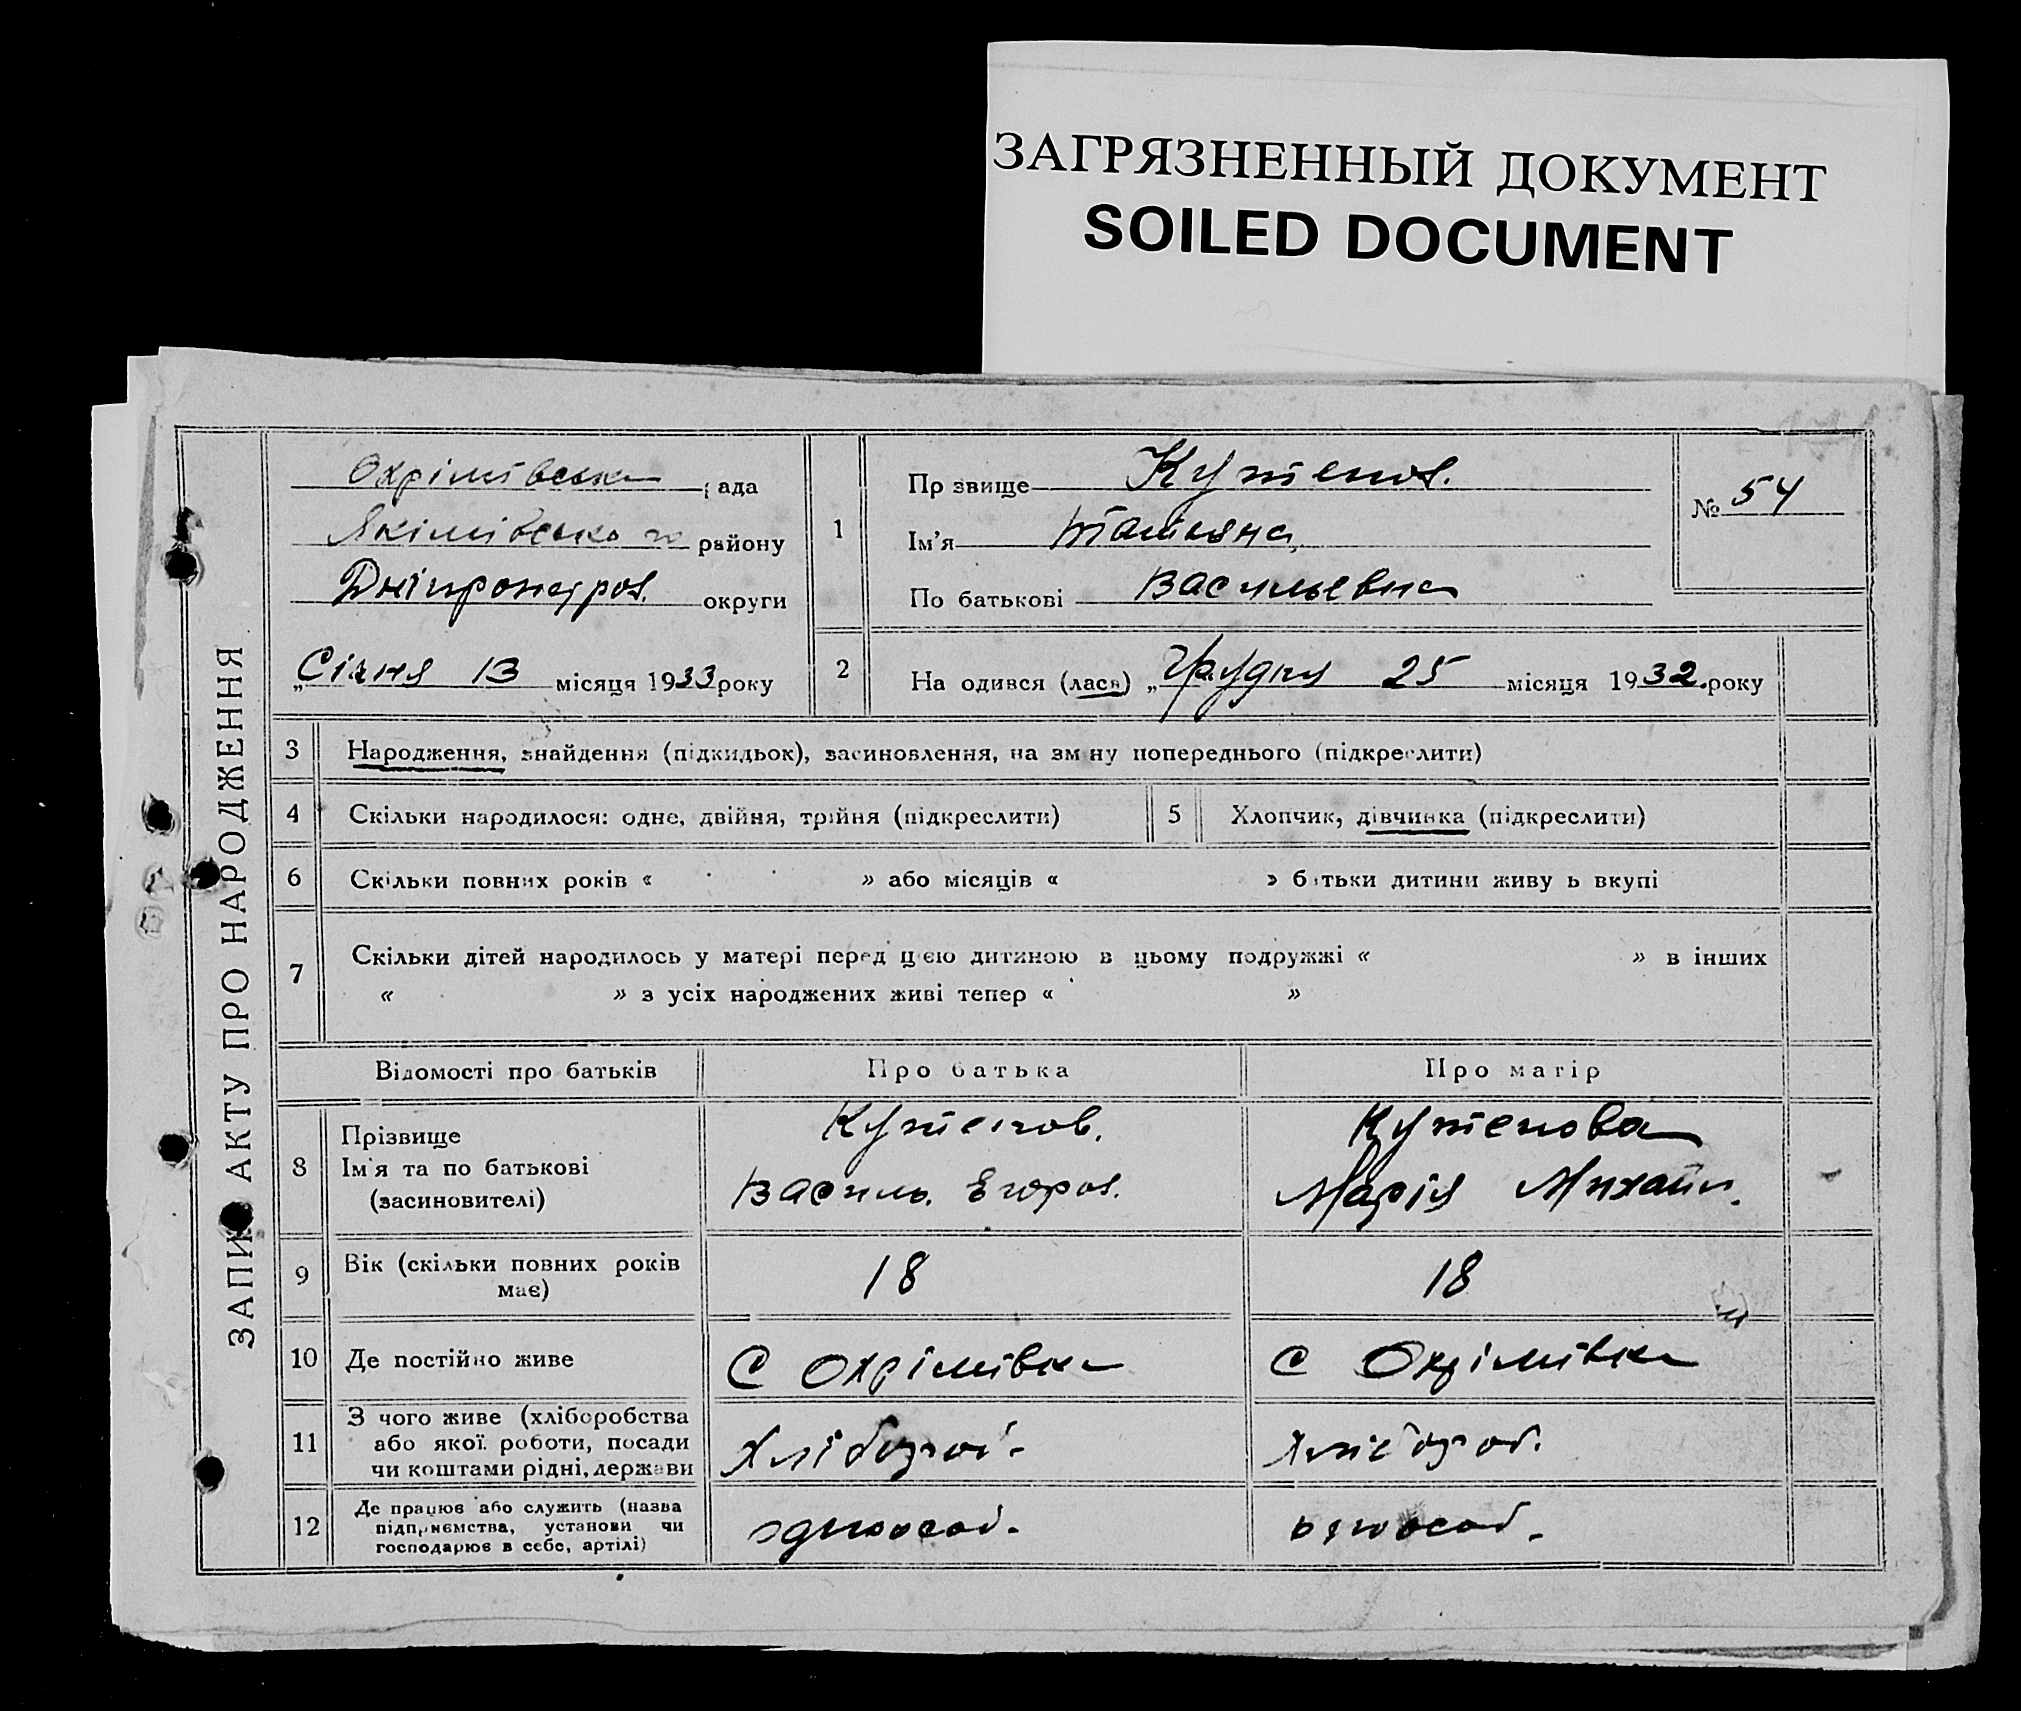 ЗАГРЯЗНЕННЫЙ ДОКУМЕНТ
SOILED DOCUMENT
ЗАПИС АКТУ ПРО НАРОДЖЕННЯ
Охрімівська рада
Якімівського району
Дніпропетров. округи
„Січня 13 місяця 1933 року
1
Прзвище Кутепов.
Ім'я Татьяна
По батькові Васильевна
№ 54
2
На одився (лася) „Грудня 25 місяця 1932. року
3 Народження, знайдення (підкидьок), засиновлення, на зм ну попереднього (підкреслити)
4 Скільки народилося: одне, двійня, трійня (підкреслити)
5 Хлопчик, дівчинка (підкреслити)
6 Скільки повних років « » або місяців « » батьки дитини живу ь вкупі
7 Скільки дітей народилось у матері перед цією дитиною в цьому подружжі « » в інших
« » з усіх народжених живі тепер « »
Відомості про батьків Про батька Про матір
8 Прізвище
Ім'я та по батькові
(засиновителі)
Кутепов.
Василь. Егоров.
Кутепова
Марія Михайл.
9 Вік (скільки повних років
має)
18
18
10 Де постійно живе
С Охрімівка
С Охрімівка
11 З чого живе (хліборобства
або якої роботи, посади
чи коштами рідні, держави
Хлібороб.
Хлібороб.
12 Де працює або служить (назва
підприємства, установи чи
господарює в себе, артілі)
одноособ.
одноособ.